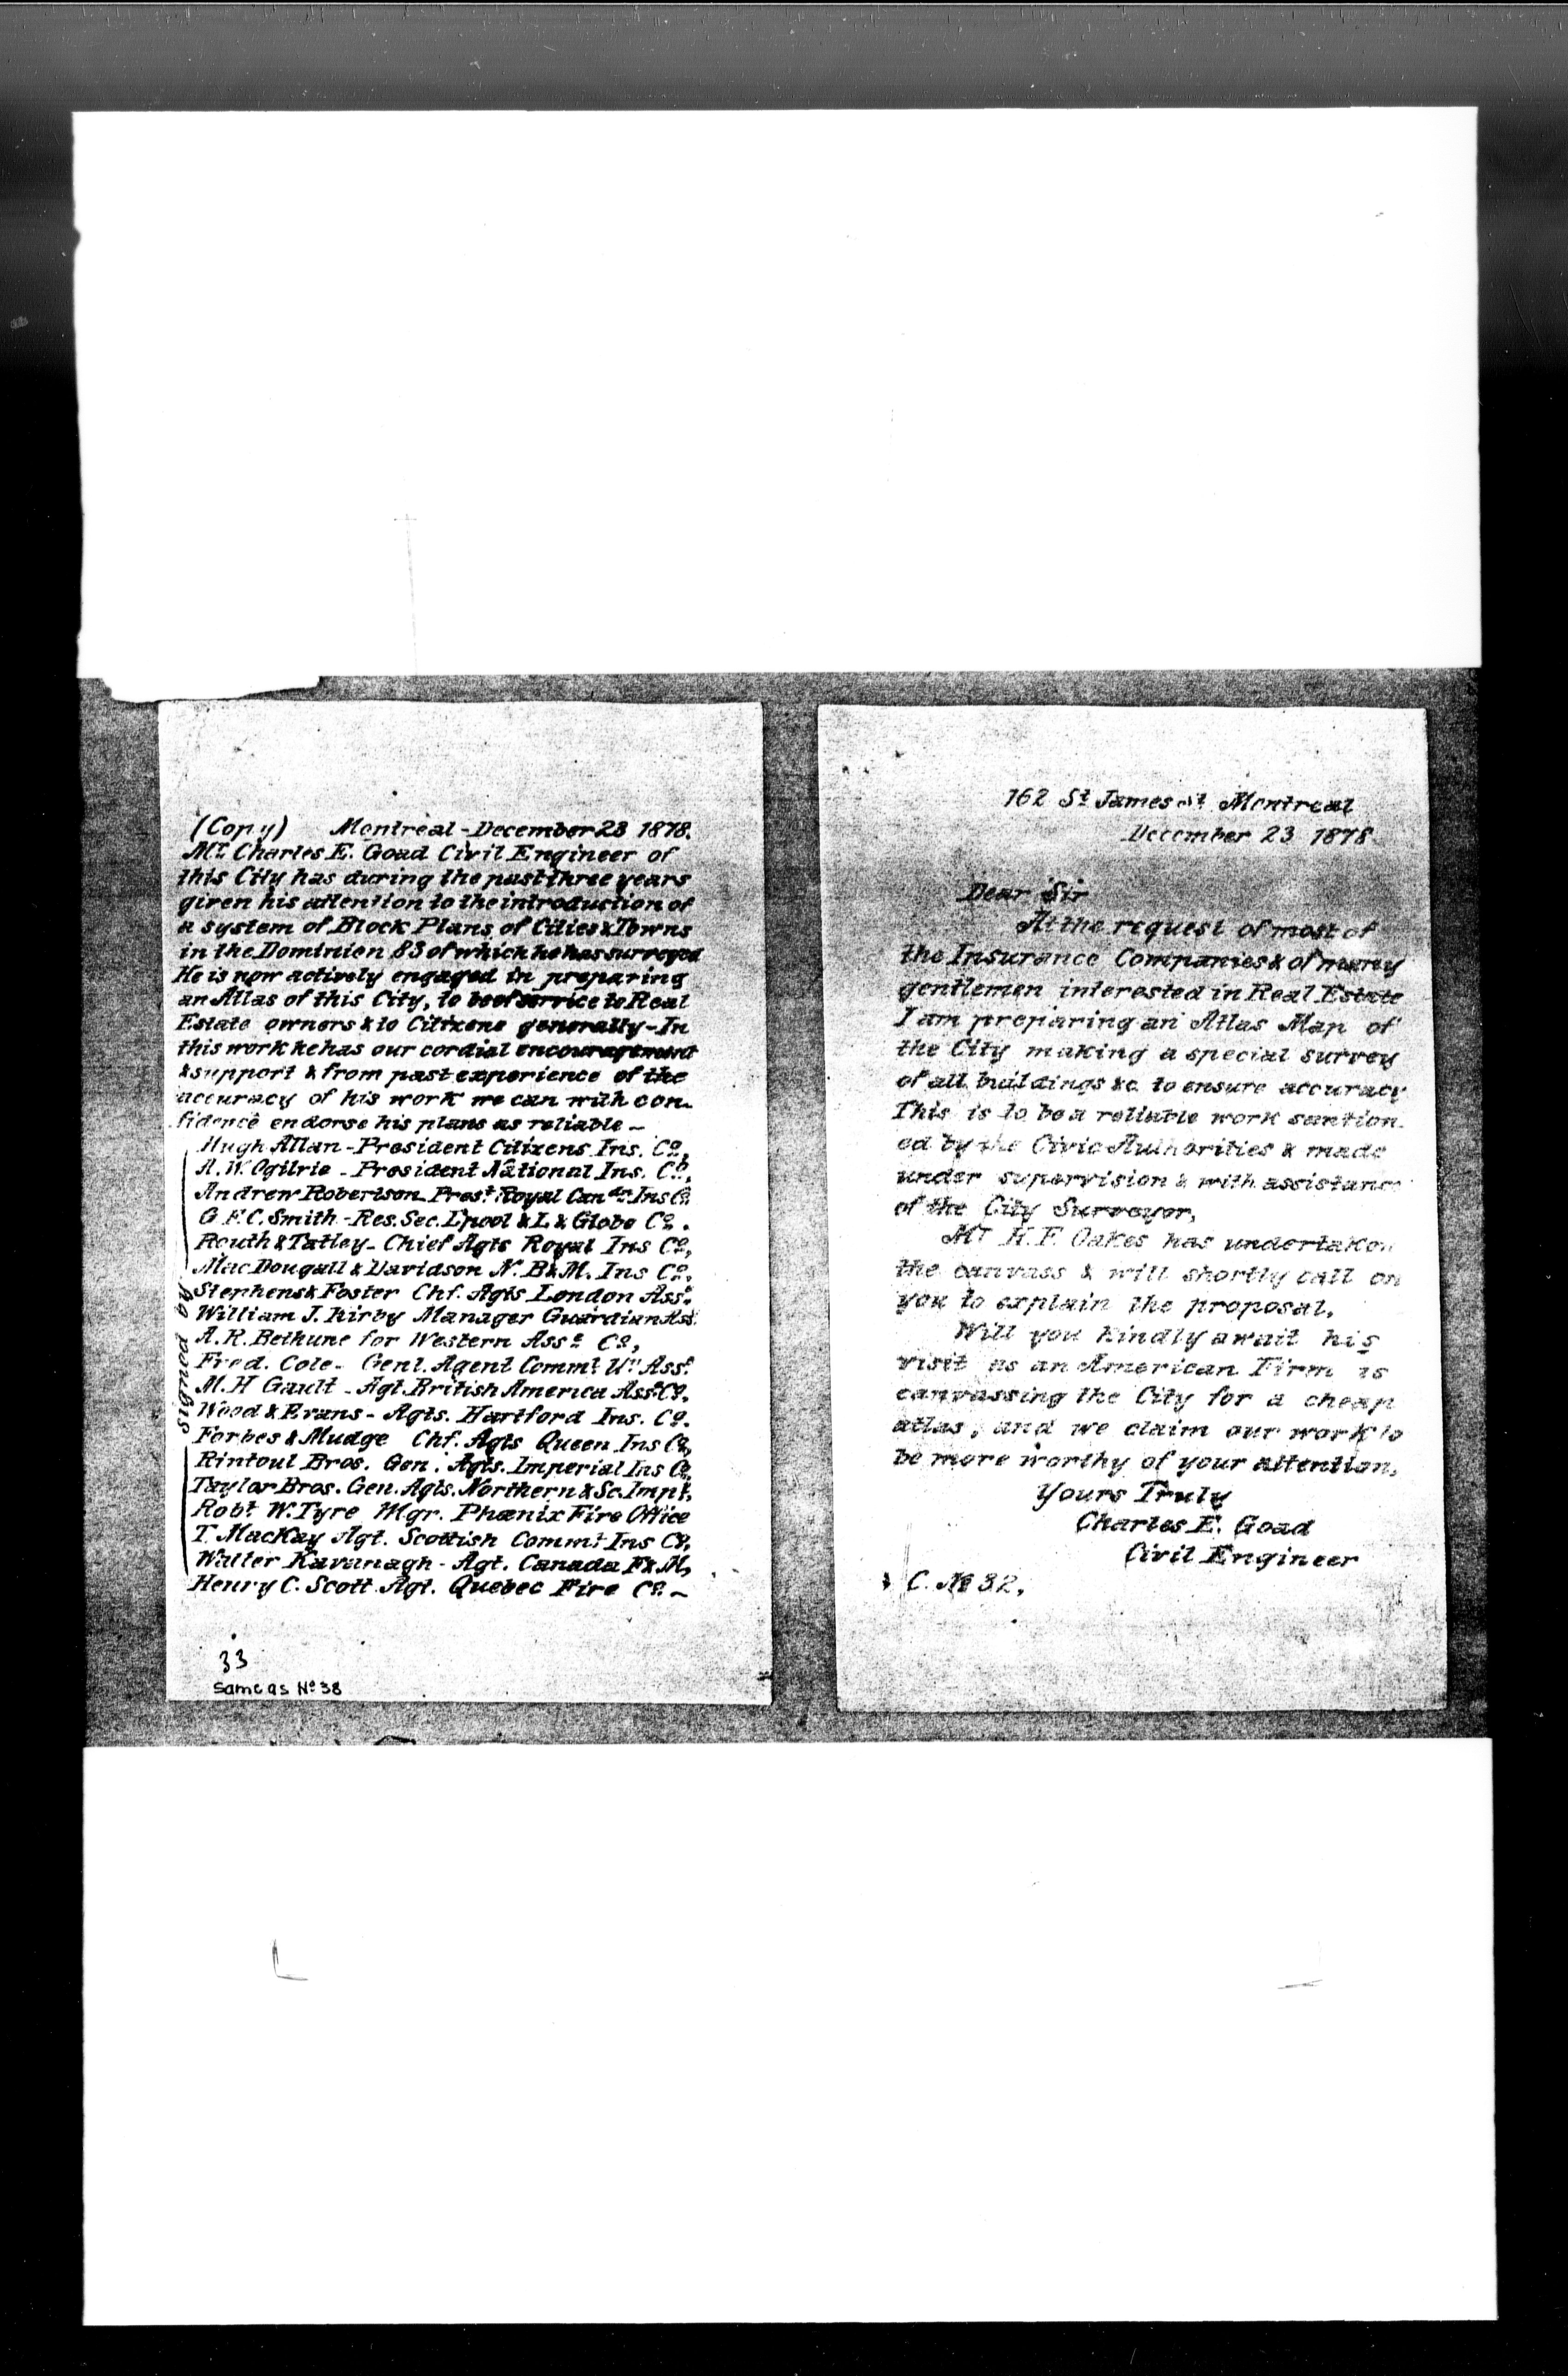 (Copy) Montreal - December 23 1878.
Mr. Charles E. Goad Civil Engineer of
this City has during the past three years
given his attention to the introduction of
a system of Block Plans of Cities & Towns
in the Dominion 83 of which he has surveyed
He is now actively engaged in preparing
an Atlas of this City, to be of service to Real
Estate owners & to Citizens generally - In
this work he has our cordial encouragement
& support & from past experience of the
accuracy of his work we can with con-
fidence endorse his plans as reliable -
Signed by
Hugh Allan - President Citizens Ins. Co,
A. W. Ogilvie - President National Ins. Co,
Andrew Robertson Prest Royal Can dn Ins Co
G F. C. Smith - Res. Sec. L'pool & L & Globe Co.
Routh & Tatley - Chief Agts Royal Ins Co,
MacDougall & Davidson N. B & M. Ins Co,
Stephens & Foster Chf. Agts London Assce
William J. Kirby Manager Guardian Ass.
A. R. Bethune for Western Assce Co,
Fred. Cole - Genl. Agent Comml. Un Assce
M. H Gault - Agt. British America Assce Co,
Wood & Evans - Agts. Hartford Ins. Co.
Forbes & Mudge Chf. Agts Queen Ins Co,
Rintoul Bros. Gen. Agts. Imperial Ins Co
Taylor Bros. Gen. Agts. Northern & Sc. Impl,
Robt W. Tyre Mgr. Phœnix Fire Office
T. MacKay Agt. Scottish Comml Ins Co,
Walter Kavanagh - Agt. Canada F & M,
Henry C. Scott Agt. Quebec Fire Co -
33
same as No 38
162 St James St Montreal
December 23 1878
Dear Sir
At the request of most of
the Insurance Companies & of many
gentlemen interested in Real Estate
I am preparing an Atlas Map of
the City making a special survey
of all buildings &c to ensure accuracy
This is to be a reliable work santion-
ed by the Civic Authorities & made
under supervision & with assistance
of the City Surveyor,
Mr H. F. Oakes has undertaken
the canvass & will shortly call on
you to explain the proposal.
Will you kindly await his
visit as an American Firm is
canvassing the City for a cheap
atlas, and we claim our work to
be more worthy of your attention,
Yours Truly
Charles E. Goad
Civil Engineer
C. No 32,